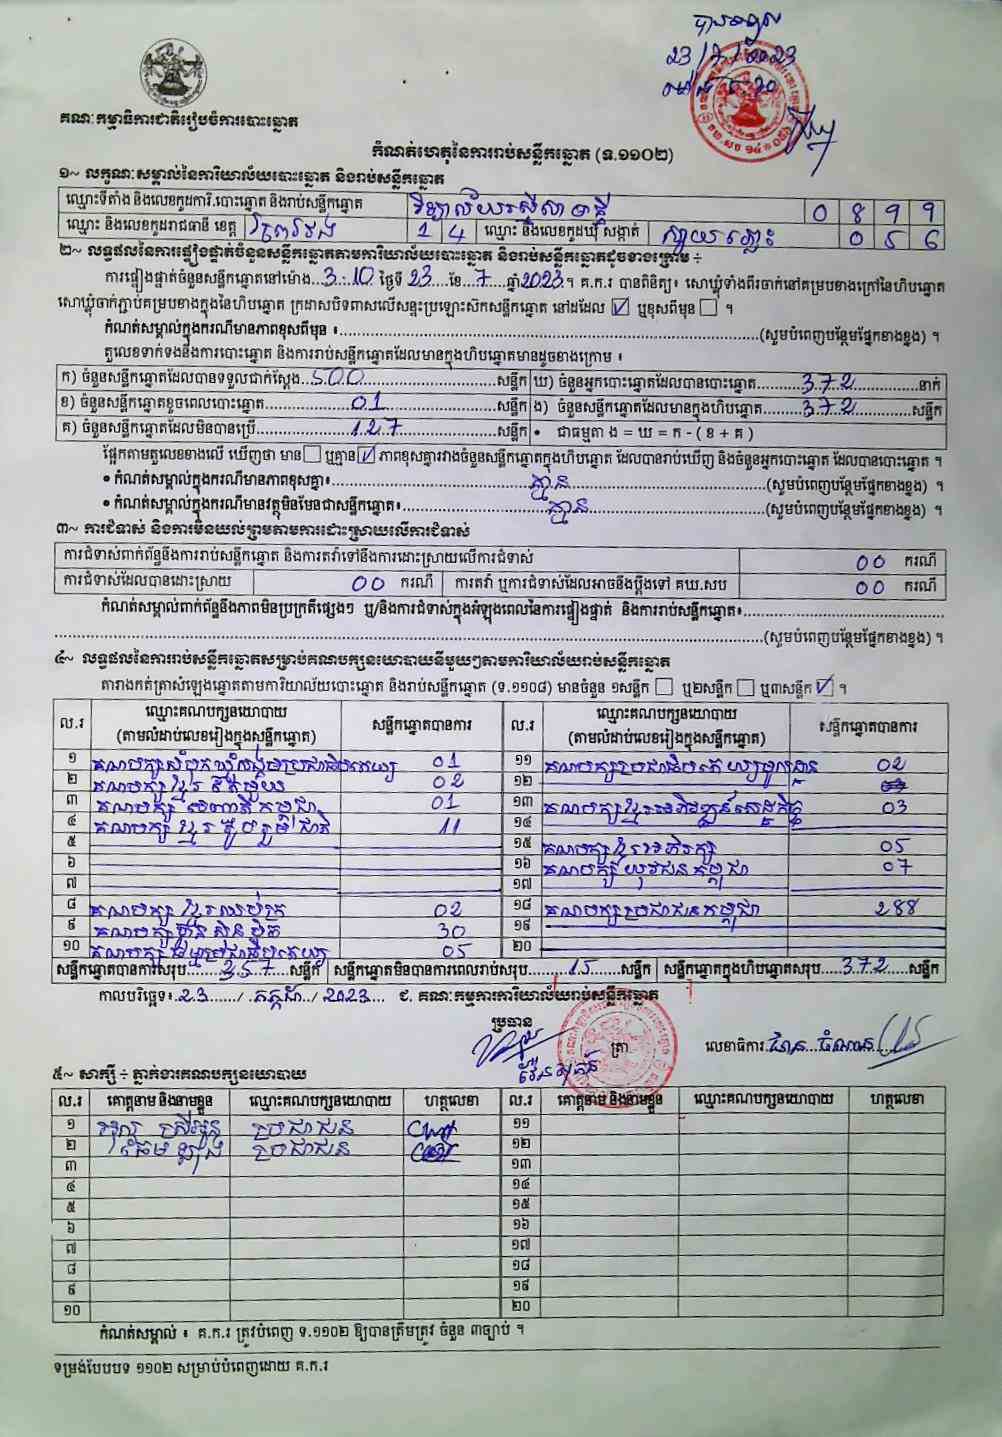 បានទទួល
23/7/2023
គណៈកម្មាធិការជាតិរៀបចំការបោះឆ្នោត
កំណត់ហេតុនៃការរាប់សន្លឹកឆ្នោត (ទ.១១០២)
១~ លក្ខណៈសម្គាល់នៃការិយាល័យបោះឆ្នោត និងរាប់សន្លឹកឆ្នោត
ឈ្មោះទីតាំង និងលេខកូដការិ.បោះឆ្នោត និងរាប់សន្លឹកឆ្នោត វិទ្យាល័យ 0 8 9 9
ឈ្មោះ និងលេខកូដរាជធានី ខេត្ត ព្រៃវែង 1 4 ឈ្មោះ និងលេខកូដឃុំ សង្កាត់ ស្វាយ 0 5 6
២~ លទ្ធផលនៃការផ្ទៀងផ្ទាត់ចំនួនសន្លឹកឆ្នោតតាមការិយាល័យបោះឆ្នោត និងរាប់សន្លឹកឆ្នោតដូចខាងក្រោម ÷
ការផ្ទៀងផ្ទាត់ចំនួនសន្លឹកឆ្នោតនៅម៉ោង...3:10 ថ្ងៃទី 23...ខែ...7...ឆ្នាំ2023។ គ.ក.រ បានពិនិត្យ៖ សោឃ្លុំទាំងពីរចាក់នៅគម្របខាងក្រៅនៃហិបឆ្នោត
សោឃ្លុំចាក់ភ្ជាប់គម្របខាងក្នុងនៃហិបឆ្នោត ក្រដាសបិទពាសលើសន្ទះប្រឡោះស៊កសន្លឹកឆ្នោត នៅដដែល ☑ ឬខុសពីមុន ☐ ។
កំណត់សម្គាល់ក្នុងករណីមានភាពខុសពីមុន ៖.....(សូមបំពេញបន្ថែមផ្នែកខាងខ្នង) ។
តួលេខទាក់ទងនឹងការបោះឆ្នោត និងការរាប់សន្លឹកឆ្នោតដែលមានក្នុងហិបឆ្នោតមានដូចខាងក្រោម ៖
ក) ចំនួនសន្លឹកឆ្នោតដែលបានទទួលជាក់ស្តែង..500.....សន្លឹក ឃ) ចំនួនអ្នកបោះឆ្នោតដែលបានបោះឆ្នោត.....372.....នាក់
ខ) ចំនួនសន្លឹកឆ្នោតខូចពេលបោះឆ្នោត.....01.....សន្លឹក ង) ចំនួនសន្លឹកឆ្នោតដែលមានក្នុងហិបឆ្នោត.....372.....សន្លឹក
គ) ចំនួនសន្លឹកឆ្នោតដែលមិនបានប្រើ.....127.....សន្លឹក • ជាធម្មតា ង = ឃ = ក - ( ខ + គ )
ផ្អែកតាមតួលេខខាងលើ ឃើញថា មាន ☐ ឬគ្មាន ☑ ភាពខុសគ្នារវាងចំនួនសន្លឹកឆ្នោតក្នុងហិបឆ្នោត ដែលបានរាប់ឃើញ និងចំនួនអ្នកបោះឆ្នោត ដែលបានបោះឆ្នោត ។
• កំណត់សម្គាល់ក្នុងករណីមានភាពខុសគ្នា៖.....គ្មាន.....(សូមបំពេញបន្ថែមផ្នែកខាងខ្នង) ។
• កំណត់សម្គាល់ក្នុងករណីមានវត្ថុមិនមែនជាសន្លឹកឆ្នោត៖.....គ្មាន.....(សូមបំពេញបន្ថែមផ្នែកខាងខ្នង) ។
៣~ ការជំទាស់ និងការមិនយល់ព្រមតាមការដោះស្រាយលើការជំទាស់
ការជំទាស់ពាក់ព័ន្ធនឹងការរាប់សន្លឹកឆ្នោត និងការតវ៉ាទៅនឹងការដោះស្រាយលើការជំទាស់ 00 ករណី
ការជំទាស់ដែលបានដោះស្រាយ 00 ករណី ការតវ៉ា ឬការជំទាស់ដែលអាចនឹងប្តឹងទៅ គឃ.សប 00 ករណី
កំណត់សម្គាល់ពាក់ព័ន្ធនឹងភាពមិនប្រក្រតីផ្សេងៗ ឬ/និងការជំទាស់ក្នុងអំឡុងពេលនៃការផ្ទៀងផ្ទាត់ និងការរាប់សន្លឹកឆ្នោត៖.....
.....(សូមបំពេញបន្ថែមផ្នែកខាងខ្នង) ។
៤~ លទ្ធផលនៃការរាប់សន្លឹកឆ្នោតសម្រាប់គណបក្សនយោបាយនីមួយៗតាមការិយាល័យរាប់សន្លឹកឆ្នោត
តារាងកត់ត្រាសំឡេងឆ្នោតតាមការិយាល័យបោះឆ្នោត និងរាប់សន្លឹកឆ្នោត (ទ.១១០៨) មានចំនួន ១សន្លឹក ☐ ឬ២សន្លឹក ☐ ឬ៣សន្លឹក ☑ ។
ល.រ ឈ្មោះគណបក្សនយោបាយ (តាមលំដាប់លេខរៀងក្នុងសន្លឹកឆ្នោត) សន្លឹកឆ្នោតបានការ ល.រ ឈ្មោះគណបក្សនយោបាយ (តាមលំដាប់លេខរៀងក្នុងសន្លឹកឆ្នោត) សន្លឹកឆ្នោតបានការ
១ គណបក្សសំបុកឃ្មុំសង្គមប្រជាធិបតេយ្យ 01 ១១ គណបក្សប្រជាធិបតេយ្យមូលដ្ឋាន 02
២ គណបក្សខ្មែរតែមួយ 02 ១២
៣ គណបក្ស សញ្ជាតិកម្ពុជា 01 ១៣ គណបក្សខ្មែរអភិវឌ្ឍន៍សេដ្ឋកិច្ច 03
៤ គណបក្ស ខ្មែរ រួបរួមជាតិ 11 ១៤
៥ ១៥ គណបក្សខ្មែរអភិរក្ស 05
៦ ១៦ គណបក្ស យុវជនកម្ពុជា 07
៧ ១៧
៨ គណបក្ស ខ្មែរឈប់ក្រ 02 ១៨ គណបក្សប្រជាជនកម្ពុជា 288
៩ គណបក្សហ៊្វុនស៊ិនប៉ិច 30 ១៩
១០ គណបក្ស ធម្មាប្រជាធិបតេយ្យ 05 ២០
សន្លឹកឆ្នោតបានការសរុប.....357.....សន្លឹក សន្លឹកឆ្នោតមិនបានការពេលរាប់សរុប.....15.....សន្លឹក សន្លឹកឆ្នោតក្នុងហិបឆ្នោតសរុប.....372.....សន្លឹក
កាលបរិច្ឆេទ៖..23...../..កក្កដា../2023.... ជ. គណៈកម្មការការិយាល័យរាប់សន្លឹកឆ្នោត
ប្រធាន
ត្រា លេខាធិការ
៥~ សាក្សី ÷ ភ្នាក់ងារគណបក្សនយោបាយ
ល.រ គោត្តនាម និងនាមខ្លួន ឈ្មោះគណបក្សនយោបាយ ហត្ថលេខា ល.រ គោត្តនាម និងនាមខ្លួន ឈ្មោះគណបក្សនយោបាយ ហត្ថលេខា
១ ប្រជាជន ១១
២ ប្រជាជន ១២
៣ ១៣
៤ ១៤
៥ ១៥
៦ ១៦
៧ ១៧
៨ ១៨
៩ ១៩
១០ ២០
កំណត់សម្គាល់ ៖ គ.ក.រ ត្រូវបំពេញ ទ.១១០២ ឱ្យបានត្រឹមត្រូវ ចំនួន ៣ច្បាប់ ។
ទម្រង់បែបបទ ១១០២ សម្រាប់បំពេញដោយ គ.ក.រ